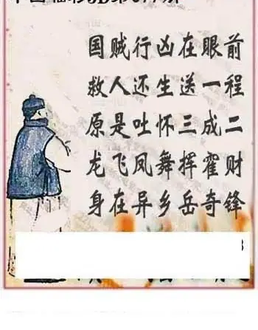 国贼行凶在眼前
救人还生送一程
原是吐怀三成二
龙飞凤舞挥霍财
身在异乡岳奇锋